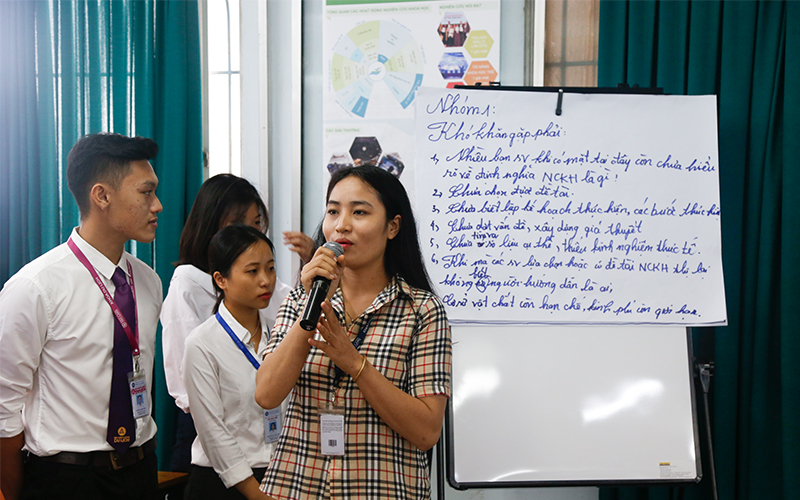 TỔNG QUAN CÁC HOẠT ĐỘNG NGHIÊN CỨU KHOA HỌC
NGHIÊN CỨU NỔI BẬT
Nhóm 1:
Khó khăn gặp phải:
1, Nhiều bạn sv khi có mặt tại đây còn chưa hiểu
rõ về định nghĩa NCKH là gì!
2, Chưa chọn được đề tài.
3, Chưa biết lập kế hoạch thực hiện, các bước thực hiện
4, Chưa đặt vấn đề, xây dựng giả thuyết
5, Chưa số liệu cụ thể, thiếu kinh nghiệm thực tế.
6, Khi mà các sv lựa chọn hoặc có đề tài NCKH thì lại
không biết người hướng dẫn là ai,
Cơ sở vật chất còn hạn chế, kinh phí còn giới hạn.
DU LỊCH